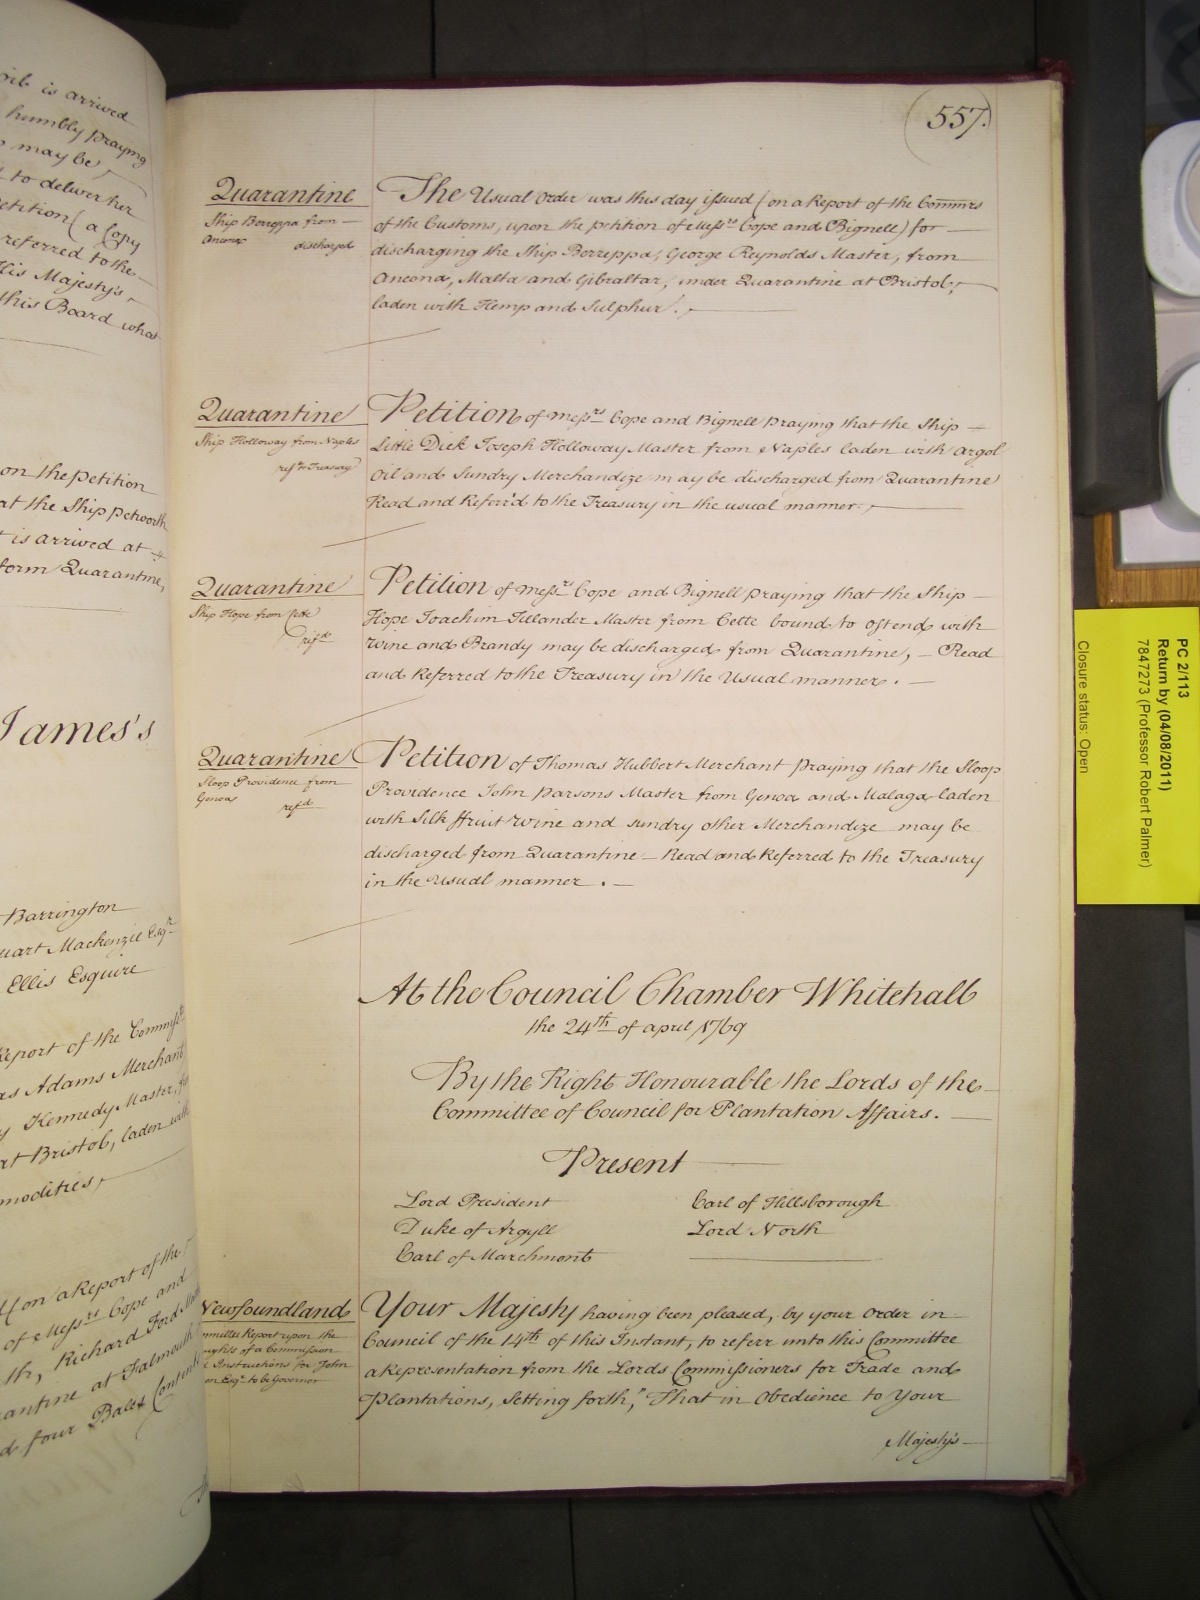 oil is arrived
humbly praying
may be
to deliver her
etition (a Copy
referred to the
His Majesty's
this Board what
on the petition
at the Ship petworth
is arrived at
form Quarantine,
James's
Barrington
uart Mackenzie Esqr
Ellis Esquire
Report of the Commissrs
as Adams Merchant
y Kennedy Master, fr
at Bristol, laden with
modities,
(on a Report of the
of Messrs Cope and
th, Richard Ford Mas
antine at Falmouth
d four Bales
557.
Quarantine
Ship Berreppa from
Ancona discharged
The Usual Order was this day issued (on a Report of the Commrs
of the Customs, upon the petition of Messrs Cope and Bignell) for
discharging the Ship Berreppa, George Reynolds Master, from
Ancona, Malta and Gibraltar, under Quarantine at Bristol,
laden with Hemp and Sulphur.
Quarantine
Ship Holloway from Naples
refd to Treasury
Petition of Messrs Cope and Bignell praying that the Ship
Little Dick Joseph Holloway Master from Naples laden with argol
Oil and Sundry Merchandize may be discharged from Quarantine
Read and Referr'd to the Treasury in the usual manner.
Quarantine
Ship Hope from Cette
refd
Petition of Messrs Cope and Bignell praying that the Ship
Hope Joachim Tillander Master from Cette bound to Ostend with
Wine and Brandy may be discharged from Quarantine, - Read
and Referred to the Treasury in the Usual manner. -
Quarantine
Sloop Providence from
Genoa refd
Petition of Thomas Hubbert Merchant praying that the Sloop
Providence John Parsons Master from Genoa and Malaga laden
with Silk ffruit Wine and sundry other Merchandize may be
discharged from Quarantine - Read and Referred to the Treasury
in the Usual manner. -
At the Council Chamber Whitehall
the 24th of April 1769
By the Right Honourable the Lords of the
Committee of Council for Plantation Affairs.
Present
Lord President Earl of Hillsborough
Duke of Argyll Lord North
Earl of Marchmont
Newfoundland
mmittee Report upon the
ughts of a Commission
d Instructions for John
on Esqr to be Governor
Your Majesty having been pleased, by your Order in
Council of the 14th of this Instant, to referr unto this Committee
a Representation from the Lords Commissioners for Trade and
Plantations, Setting forth, "That in Obedience to Your
Majesty's
PC 2/113
Return by (04/08/2011)
7847273 (Professor Robert Palmer)
Closure status: Open